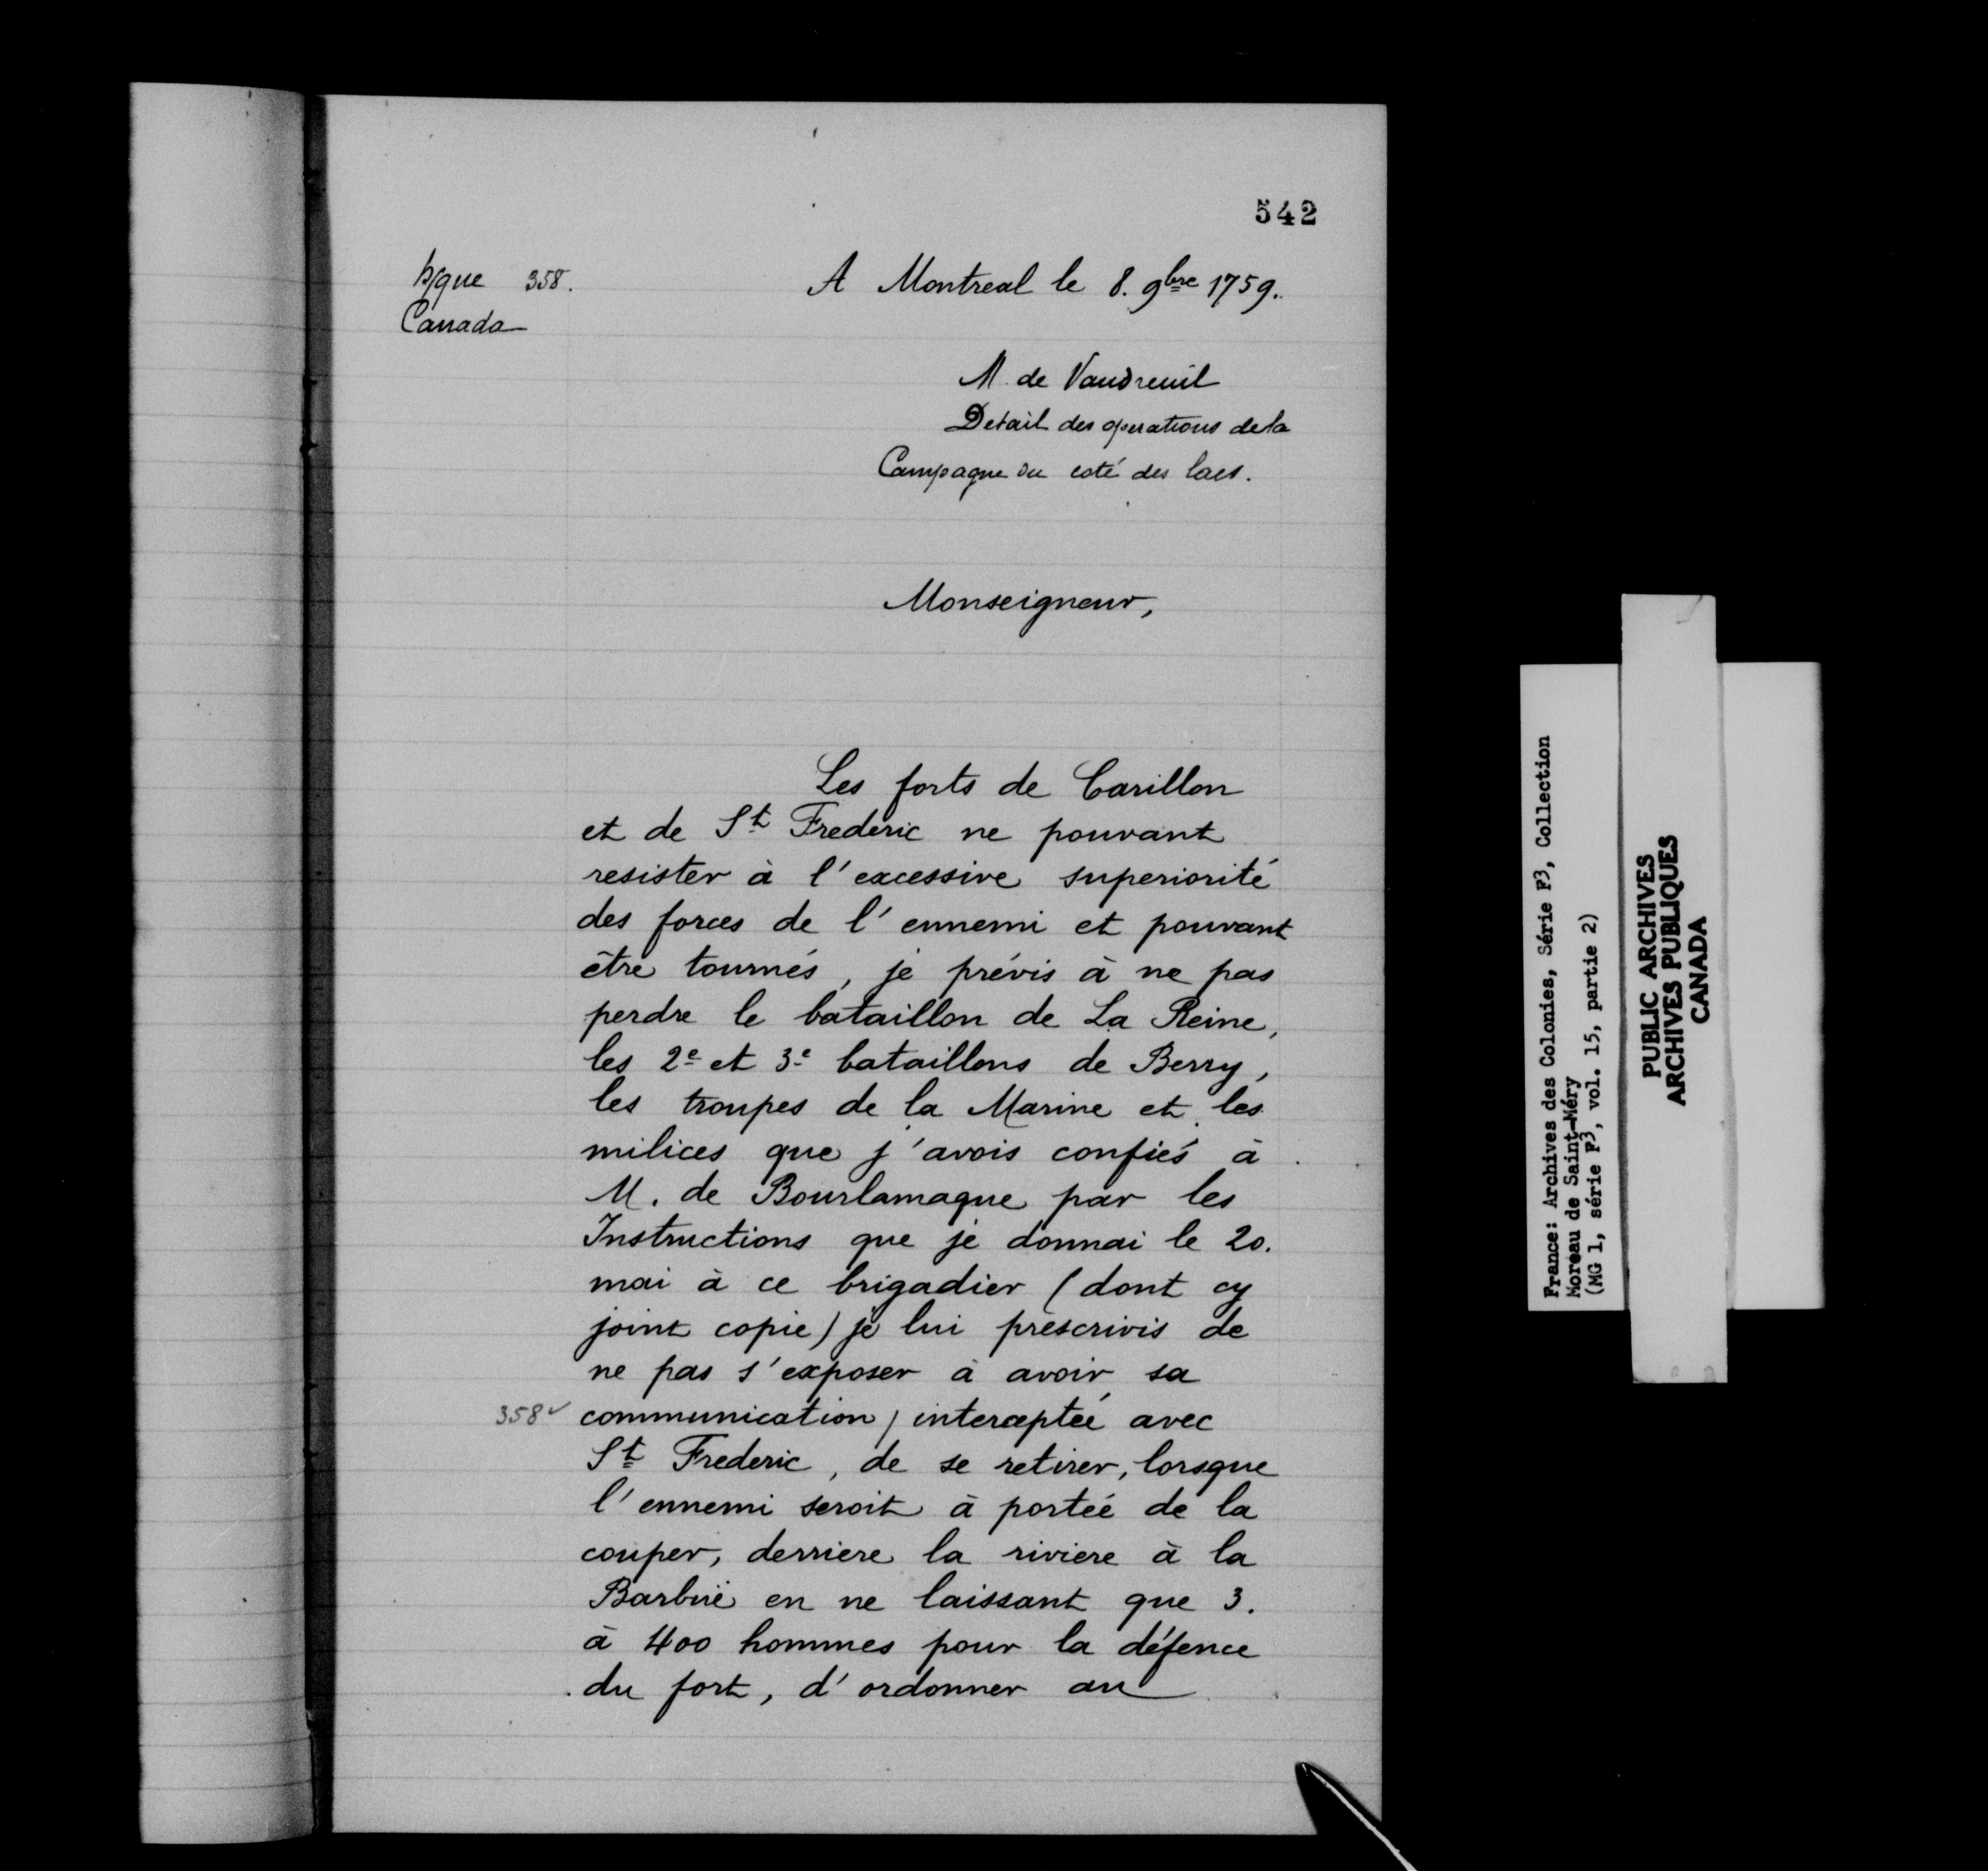 542
358.
Canada
A Montreal le 8. 9bre 1759.
M. de Vaudreuil
Detail des operations de la
Campagne du coté des lacs.
Monseigneur,
Les forts de Carillon
et de St Frederic ne pouvant
resister à l'excessive superiorité
des forces de l'ennemi et pouvant
être tournés, je prévis à ne pas
perdre le bataillon de La Reine,
les 2e et 3e bataillons de Berry,
les troupes de la Marine et les
milices que j'avois confiés à
M. de Bourlamaque par les
Instructions que je donnai le 20.
mai à ce brigadier (dont cy
joint copie) je lui prescrivis de
ne pas s'exposer à avoir sa
358v communication / interceptée avec
St Frederic, de se retirer, lorsque
l'ennemi seroit à portée de la
couper, derriere la riviere à la
Barbuë en ne laissant que 3.
à 400 hommes pour la défence
du fort, d'ordonner au
France: Archives des Colonies, Série F3, Collection
Moreau de Saint-Méry
(MG 1, série F3, vol. 15, partie 2)
PUBLIC ARCHIVES
ARCHIVES PUBLIQUES
CANADA